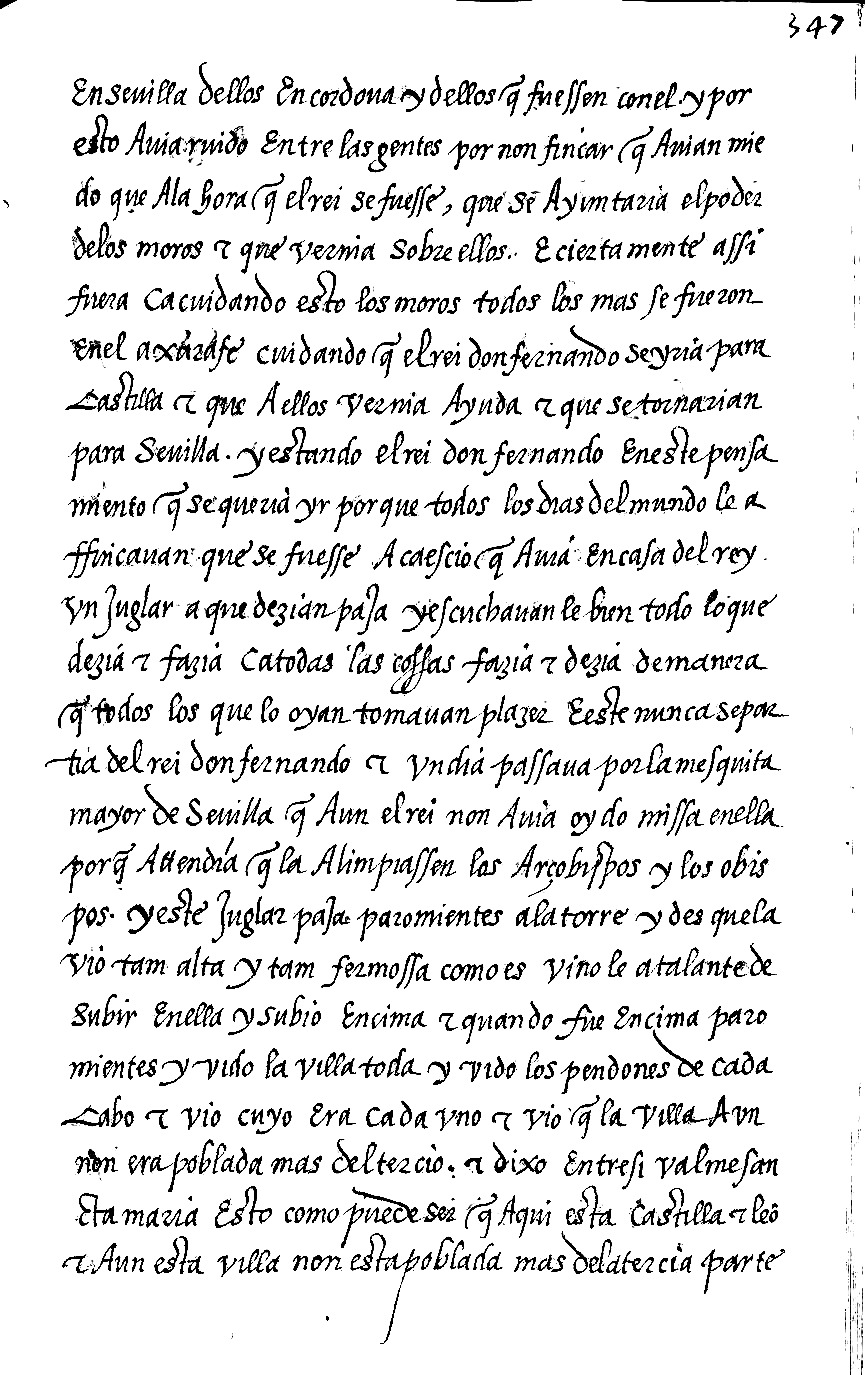 347
En sevilla dellos En cordova y dellos q̃ fuessen con el. y por
esto Auia ruido Entre las gentes por non fincar q̃ Auian mie
do que Ala hora q̃ el rei se fuesse, que se Ayuntaria el poder
delos moros ⁊ que vernia sobre ellos. E ciertamente assi
fuera Ca cuidando esto los moros todos los mas se fueron
enel axarafe cuidando q̃ el rei don fernando se yria para
Castilla ⁊ que A ellos vernia Ayuda ⁊ que se tornarian
para Sevilla. y estando el rei don fernando En este pensa
miento q̃ se queria yr porque todos los dias del mundo le a
ffincauan que se fuesse Acaescio q̃ Auia En casa del rey
vn Juglar a que dezian paJa y escuchauan le bien todo lo que
dezia ⁊ fazia Ca todas las cossas fazia ⁊ dezia de manera
q̃ todos los que lo oyan tomauan plazer E este nunca se par
tia del rei don fernando ⁊ vn dia passaua por la mesquita
mayor de Sevilla q̃ Aun el rei non Auia oydo missa enella
porq̃ Attendia q̃ la Alimpiassen los Arçobispos y los obis
pos. y este Juglar paJa paro mientes a la torre y des que la
vio tam alta y tam fermossa como es vino le a talante de
subir Enella y subio Encima ⁊ quando fue Encima paro
mientes y vido la villa toda y vido los pendones de cada
Cabo ⁊ vio cuyo Era cada vno ⁊ vio q̃ la villa Avn
non era poblada mas del tercio. ⁊ dixo Entre si valme san
cta maria Esto como puede ser q̃ Aqui esta Castilla ⁊ leõ
⁊ Aun esta villa non esta poblada mas dela tercia parte